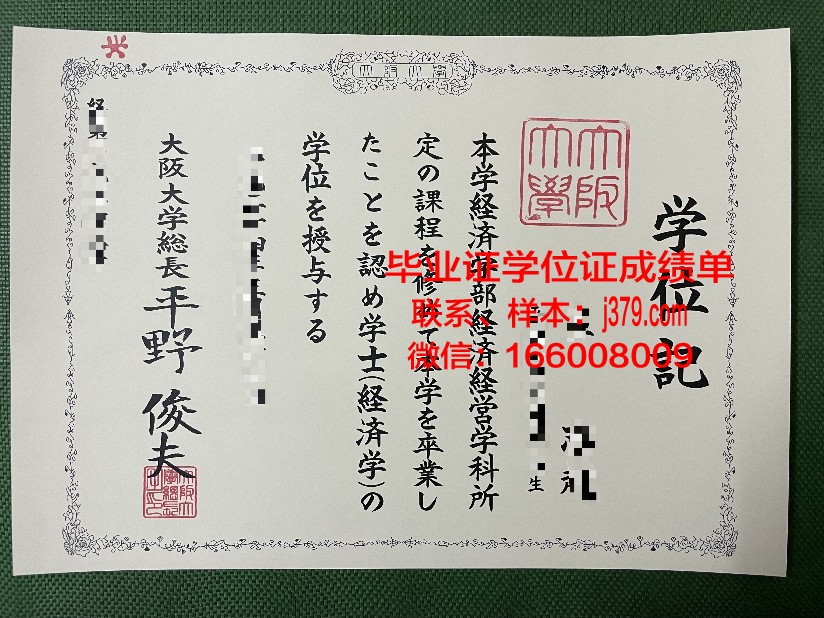 学位記
大阪
大學
生
本学経済学部経済経営学科所
定の課程を修めて本学を卒業し
たことを認め学士(経済学)の
学位を授与する
大阪大学総長 平野 俊夫
毕业证学位证成绩单
联系、样本：j379.com
微信：166008009